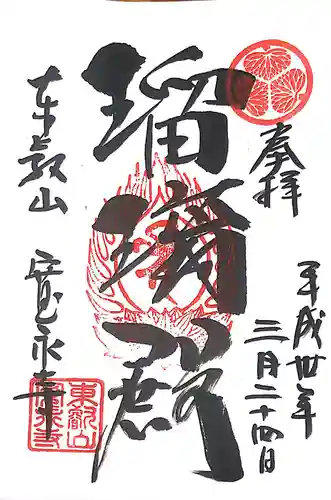 奉拝
平成卅年
三月二十四日
瑠璃殿
東叡山
寛永寺
東叡山
寛永寺